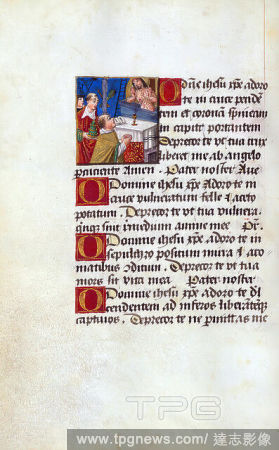 O Dñe ihesu xpe adoro
te in cruce penden
tem et coronā spineam
in capite portantem
Deprecor te vt tua crux
liberet me ab angelo
percuciente Amen. Pater noster Aue
O Domine ihesu xpe Adoro te in
cruce vulneratum felle z aceto
potatum. Deprecor te vt tua vulnera
sint remedium anime mee
O Domine ihesu xpe adoro te in
sepulchro positum mirra z aro
matibus Deprecor te vt tua
mors sit vita mea Pater noster
O Domine ihesu xpe Adoro te
cendentem ad inferos liberātemqz
captiuos. Deprecor te ne permittas me
TPG
www.tpgnews.com/達志影像